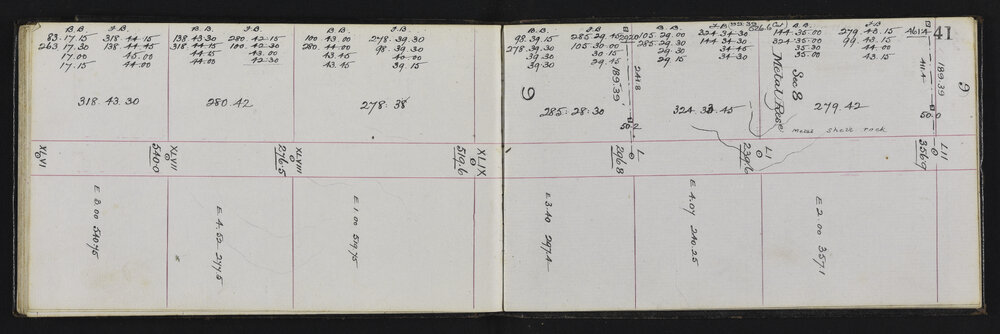 B.B. F.B.
83.17.15 318.44.15
263 17.30 138 44.45
17.00 45.00
17.15 44.00
318.43.30
138.43.30 280.42.15
318.44.15 100.42.30
44.15 43.00
44.00 42.30
280.42
B.B. F.B.
100 43.00 278.39.30
280.44.00 98.39.30
43.45 40.00
43.45 39.15
278.38
B.B. F.B.
98.39.15 285.29.45
278.39.30 105.30.00
39.30 30.15
39.30 29.45
285.28.30
9
189.39
241.8
50.2
105 29.00 324 34 30
285.29.30 144.34.30
29.30 34.45
29.15 34.30
Sec 8
Metal Rose
Metal shell rock
B.B. F.B.
144.35.00 279 43.15
324.35.00 99.43.15
35.00 44.00
35.00 43.15
279.42
461.4
41
189.39
411.4
50.0
9
XLVI
XLVII
5400
XLVIII
276.5
XLIX
519.6
L
296.8
LI
239.6
LII
356.9
E 3.00 540.75
E 4.52 277.5
E 1.00 519.75
E 3.40 297.4
E 4.07 240.25
E 2.00 357.1